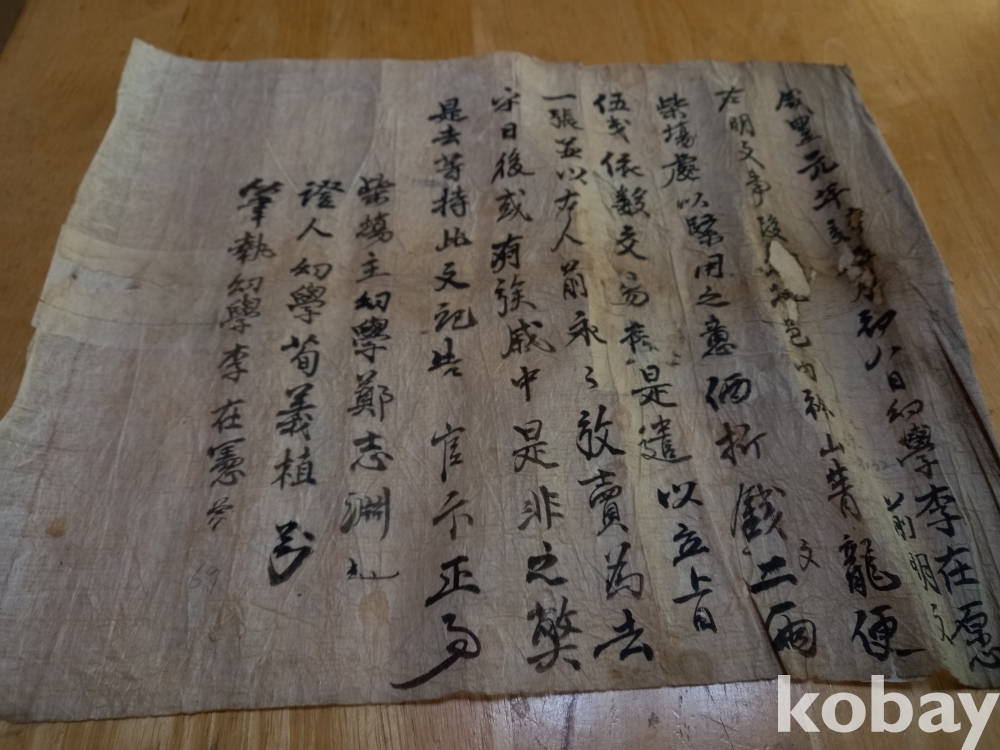 咸豊元年 月初八日幼學李在愿
前明文
右明文事段 邑內 山菁龍便
柴場處以緊用之意価折錢文二兩
伍戔依数交易 是遣以立上日
一張並以右人前永〻放賣為去
乎日後或有族戚中是非之獘
是去等持此文記告 官卞正事
柴場主幼學鄭志淵
證人幼學荀義植
筆執幼學李在憲
kobay